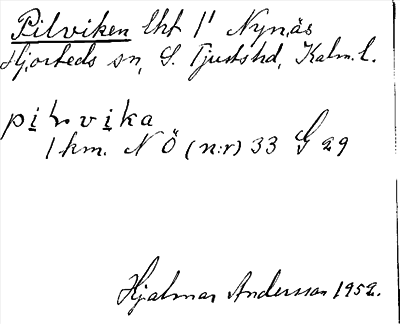 Pilviken lht 1' Nynäs
Hjorteds sn, S. Tjusts hd, Kalm. l.
pilvika
1 km. N Ö (n:r) 33 G 29
Hjalmar Andersson 1952.